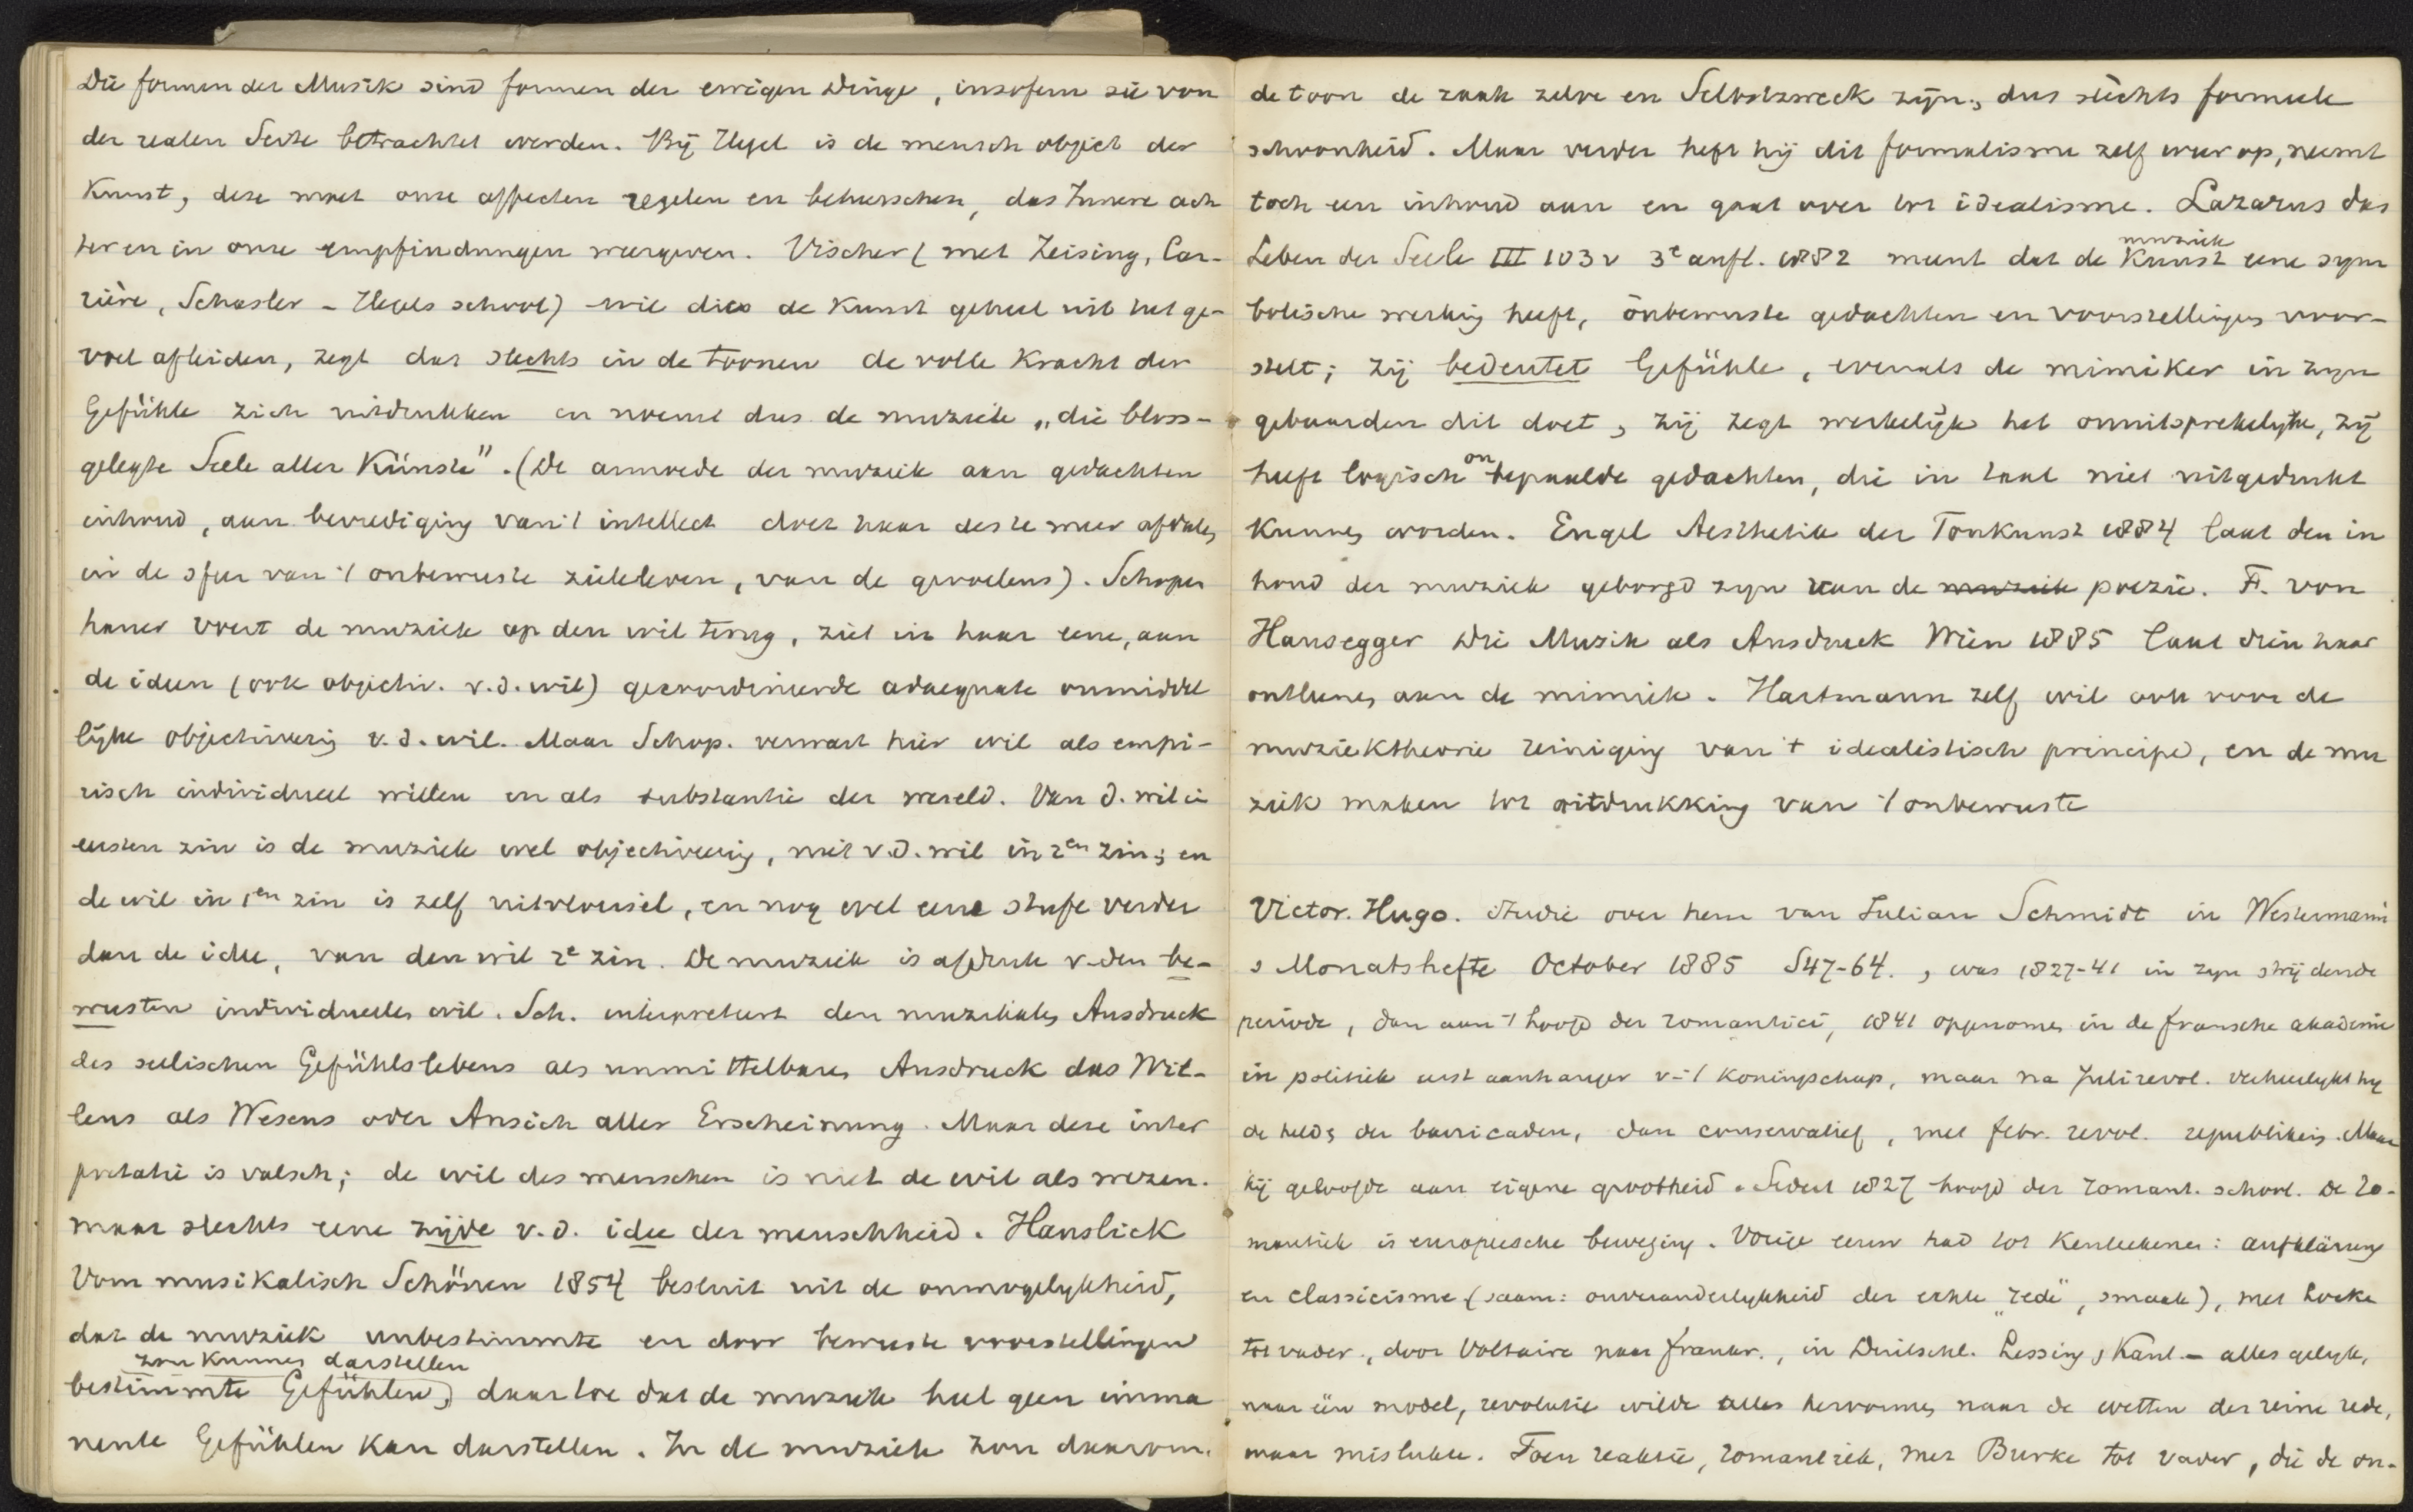 Die formen der Musik sind formen der ewigen Dinge, insofern sie von
der realen Seite betrachtet werden. Bij Hegel is de mensch object der
Kunst, deze moet onze affecten regelen en beheerschen, das Innere ach
ter en in onze empfindungen weergeven. Vischer (met Zeising, Car-
rière, Schasler - Hegels school) wil dies de Kunst geheel uit het ge-
voel afleiden, zegt dat slechts in de toonen de volle Kracht der
Gefühle zich uitdrukken en noemt dus de muziek „die bloss-
gelegte Seele aller Künste". (De armoede der muziek aan gedachten
inhoud, aan bevrediging van 't intellect doet haar des te meer afdalen
in de sfeer van 't onbewuste zieleleven, van de gevoelens). Schopen
hauer voert de muziek op den wil terug, ziet in haar eene, aan
de ideen (ook objectiv. v.d. wil) gecoordineerde adaequate onmiddel
lijke objectiveering v.d. wil. Maar Schop. verwart hier wil als empi-
risch individueel willen en als substantie der wereld. Van d. wil in
eersten zin is de muziek wel objectiveering, niet v.d. wil in 2en zin; en
de wil in 1en zin is zelf uitvloeisel, en nog wel eene stufe verder
dan de idee, van den wil 2e zin. De muziek is afdruk v. den be-
wusten individueelen wil. Sch. interpreteert den muzikalen Ausdruck
des seelischen Gefühlslebens als unmittelbaren Ausdruck das Wil-
lens als Wesens oder Ansich aller Erscheinung. Maar deze inter
pretatie is valsch; de wil des menschen is niet de wil als wezen.
maar slechts eene zijde v.d. idee der menschheid. Hanslick
Vom musikalisch Schönen 1854 besluit uit de onmogelijkheid,
dat de muziek unbestimmte en door bewuste voorstellingen
zou kunnen darstellen
bestimmte Gefühlen, daartoe dat de muziek heel geen imma
nente Gefühlen kan darstellen. In de muziek zou daarom
de toon de zaak zelve en Selbstzweck zijn; dus slechts formeele
schoonheid. Maar verder heft hij dit formalisme zelf weer op, neemt
toch een inhoud aan en gaat over tot idealisme. Lazarus das
muziek
Leben der Seele III 103 v 3e aufl. 1882 meent dat de Kunst eene sym
bolische werking heeft, onbewuste gedachten en voorstellingen voor-
stelt; zij bedeutet Gefühle, evenals de mimiker in zijn
gebaarden dit doet, zij zegt werkelijk het onuitsprekelijke, zij
on
heeft logisch bepaalde gedachten, die in taal niet uitgedrukt
kunnen worden. Engel Aesthetik der Tonkunst 1884 laat den in
houd der muziek geborgd zijn van de muziek poezie. F. von
Hausegger Die Musik als Ausdruck Wien 1885 laat dien haar
ontleenen aan de mimiek. Hartmann zelf wil ook voor de
muziektheorie reiniging van 't idealistisch principe, en de mu
ziek maken tot uitdrukking van 't onbewuste
Victor. Hugo. studie over hem van Julian Schmidt in Westermann
s Monatshefte October 1885 S47-64., was 1827-41 in zijn strijdende
periode, dan aan 't hoofd der romantici, 1841 opgenomen in de fransche akademie
in politiek eerst aanhanger v. 't Koningschap, maar na Julirevol. verheerlijkt hij
de helden der barricaden, dan conservatief, met febr. revol. republikein. Maar
hij geloofde aan eigene grootheid. Sedert 1827 hoofd der romant. school. De Ro-
mantiek is europeesche beweging. Vorige eeuw had tot Kenteekenen: aufklärung
en classicisme (saam: onveranderlijkheid der echte "rede", smaak), met Locke
tot vader, door Voltaire naar frankr., in Duitschl. Lessing, Kant. - alles gelijk,
naar één model, revolutie wilde alles hervormen naar de wetten der reine rede,
maar mislukte. Toen reaktie, romantiek, met Burke tot vader, die de on-